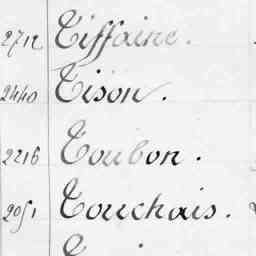 2712 Tiffaine.
2440 Tison.
2216 Toubon.
2051 Touchais.